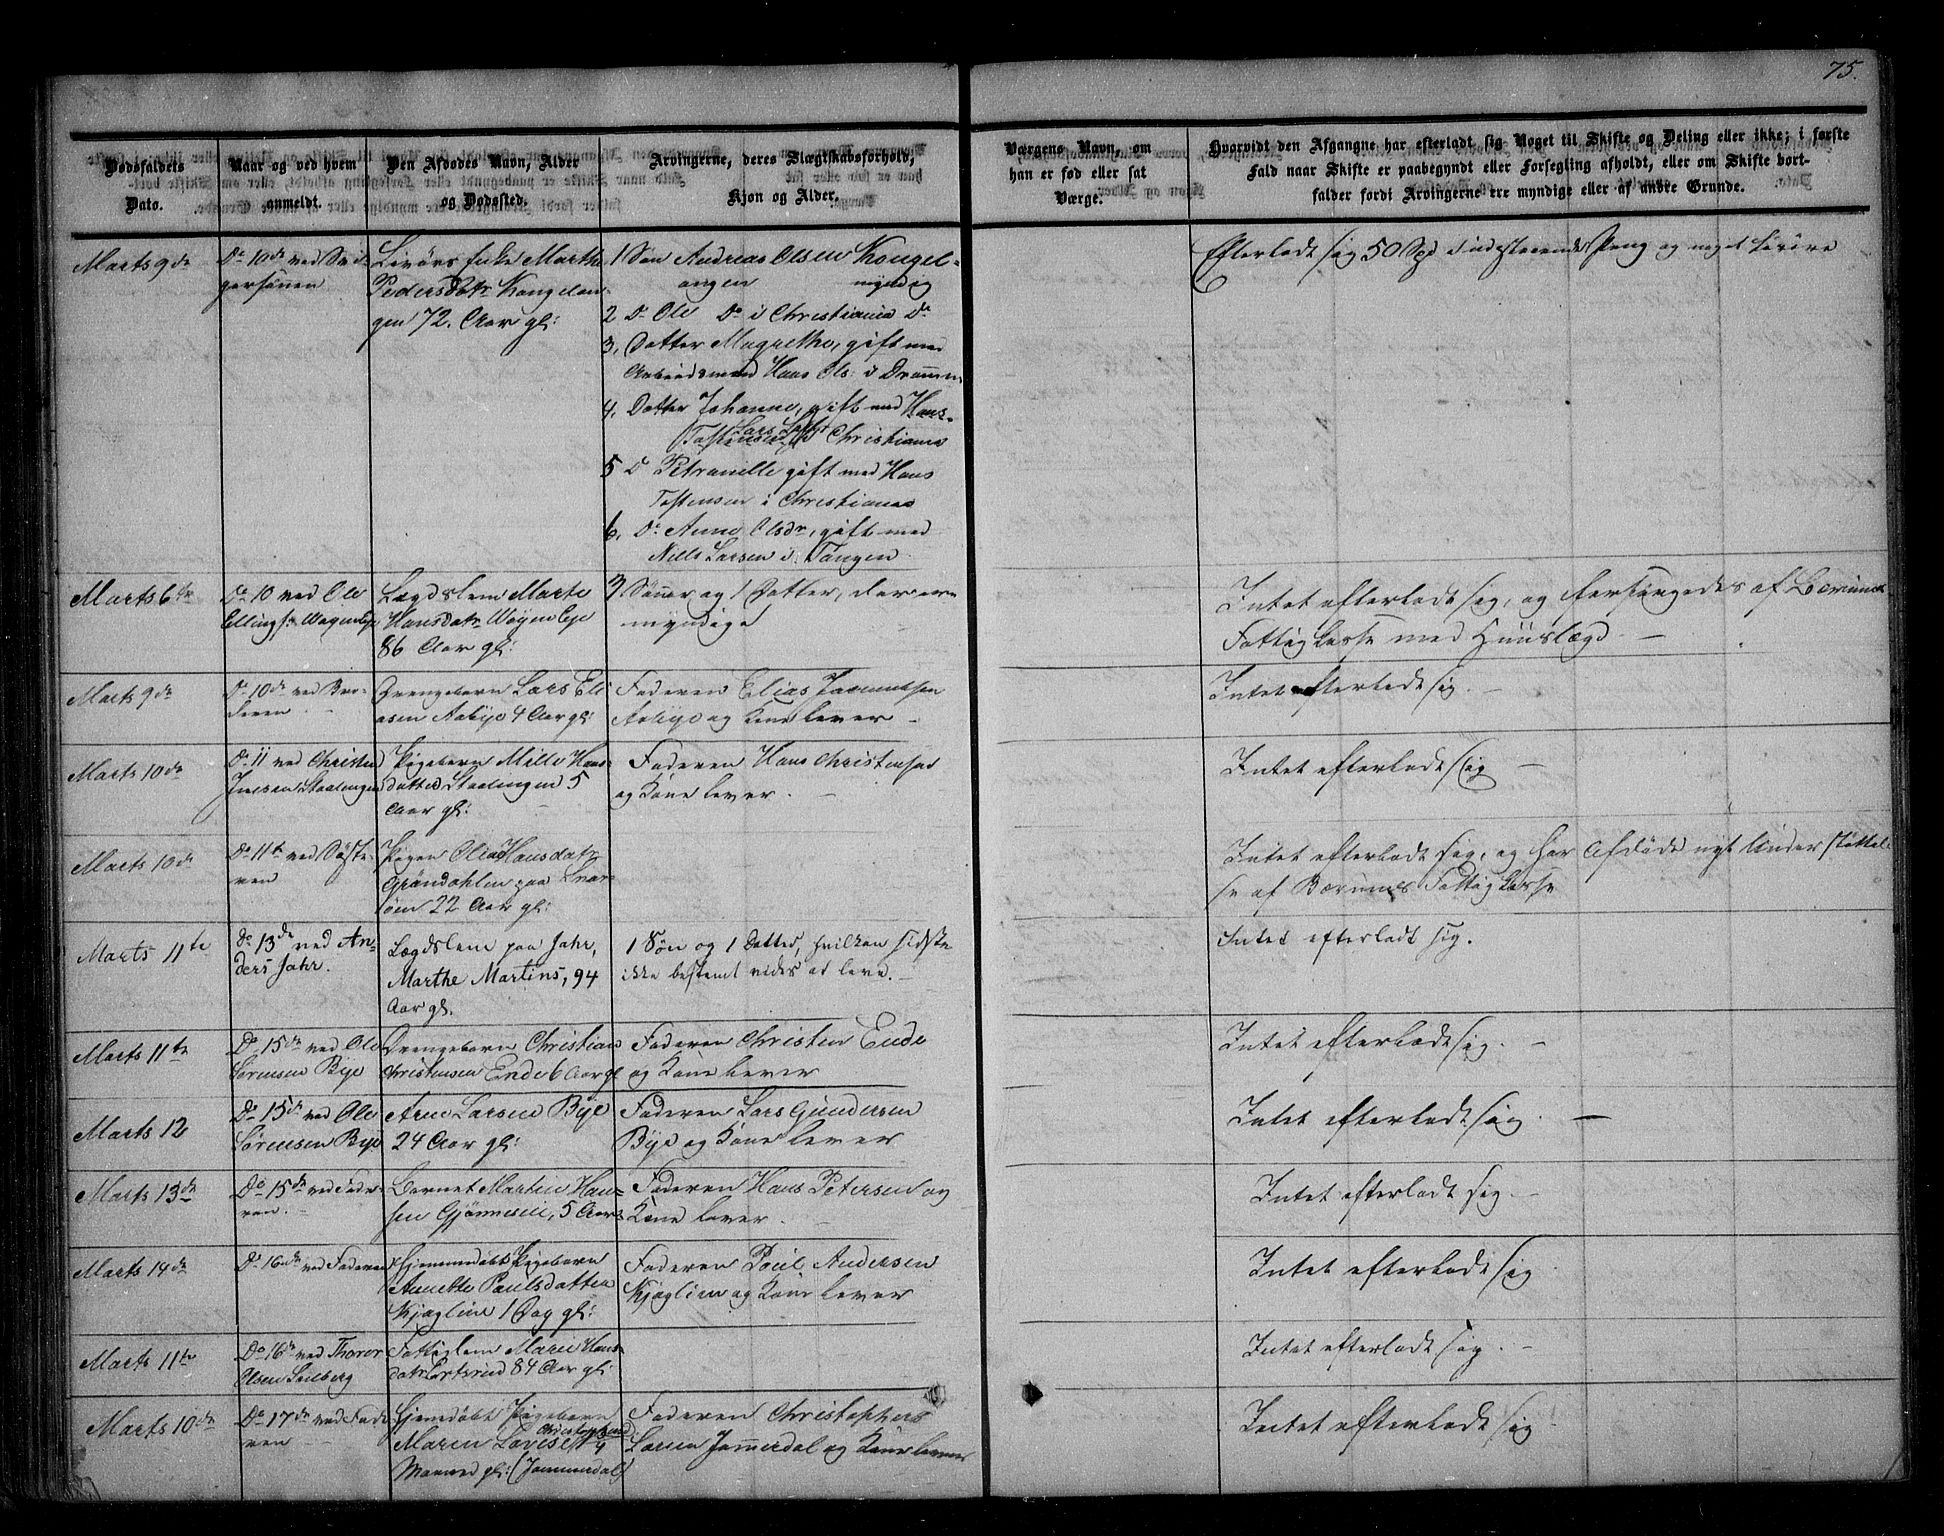 75.
Dødsfaldets
Dato.
Naar og ved hvem
anmeldt.
Den Afdødes Navn, Alder
og Dødssted.
Arvingerne, deres Slægtskabsforhold,
Kjøn og Alder.
Værgens Navn, om
han er fød eller sat
Værge.
Hvorvidt den Afgangne har efterladt sig Noget til Skifte og Deling eller ikke; i første
Fald naar Skifte er paabegyndt eller Forsegling afholdt, eller om Skifte bort-
falder fordi Arvingerne ere myndige eller af andre Grunde.
Marts 9de
Do 10de ved Svi-
gersønnen
Enke Marthe
Pedersdatr Kongelan-
gen 72. Aar gl:
1 Søn Andreas Olsen Kongel-
angen myndig
2 Do Ole Do i Christiania Do
3. Datter Magrethe, gift med
Arbeidsmand Hans Ols: i Drammen
4. Datter Johanne, gift med Hans
Tostensen Lars i Christiania
5 Do Petronille gift med Hans
Tostensen i Christiania
6. Do Anne Olsdr, gift med
Nells Larsen i Tangen
Efterlod sig 50 Spd i indestaaende Penge og noget Løsøre
Marts 6te
Do 10 ved Ole
Ellings Wøyen Eje
Lægdslem Marte
Hansdatr Wøyen Eje
86 Aar gl:
3 Sønner og 1 Datter, der ere
myndige
Intet efterladt sig, og forsørgedes af Bærums
Fattigkasse med Huuslægd —
Marts 9de
Do 10de ved Bro-
deren
Drengebarn Lars Eli
asen Aabye 4 Aar gl:
Faderen Elias
Aabye og Kone lever —
Intet efterladt sig. —
Marts 10de
Do 11 ved Christen
Jensen Staalingen
Pigebarn Mille Hans
datter Staalingen 5
Aar gl:
Faderen Hans Christensen
og Kone lever. —
Intet efterladt sig —
Marts 10de
Do 11te ved Søste-
ren
Pigen Olia Hansdatr
Grøndahlen paa Snar-
øen 22 Aar gl:
Intet efterladt sig, og har Afdøde nydt Understøttel-
se af Bærums Fattigkasse
Marts 11te
Do 13de ved An-
ders Jahr.
Lægdslem paa Jahr,
Marthe Martins, 94
Aar gl.
1 Søn og 1 Datter, hvilken sidste
ikke bestemt vides at leve. —
Intet efterladt sig.
Marts 11te
Do 15de ved Ole
Sørensen Bye
Drengebarn Christian
Christensen Ende 6 Aar gl
Faderen Christen Ende
og Kone lever
Intet efterladt sig. —
Marts 12
Do 15de ved Ole
Sørensen Bye
Aren Larsen Bye
24 Aar gl:
Faderen Lars Gundersen
Bye og Kone lever
Intet efterladt sig. —
Marts 13de
Do 15de ved Fade-
ren. —
Barnet Martin Han-
sen Gjønnesen, 5 Aar
Faderen Hans Petersen og
Kone lever. —
Intet efterladt sig. —
Marts 14de
Do 16de ved Faderen
Hjemmedøbt Pigebarn
Anette Paulsdatter
Kjaglien 1 Dag gl:
Faderen Poul Andersen
Kjaglien og Kone lever
Intet efterladt sig
Marts 11te
Do 16de ved Thorer
Olsen
Fattiglem Maren Hans-
datr 84 Aar gl:
Intet efterladt sig. —
Marts 10de
Do 17de ved Fade-
ren —
Hjemdøbt Pigebarn
Maren Lovise
Maaned gl: (Jammerdal)
Faderen Christopher
Larsen Jammerdal og Kone lever
Intet efterladt sig